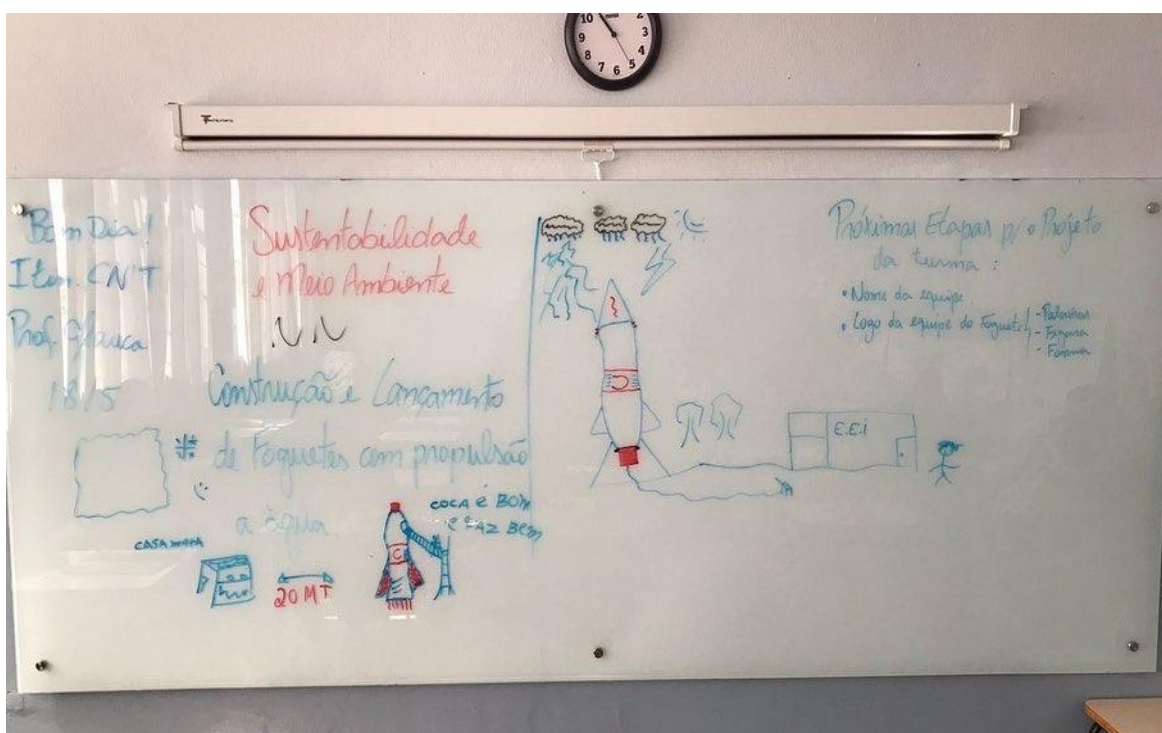 10
2
9
3
8
4
7
6
5
Bom Dia!
Iten. CNT
Prof. Glauca
18/5
Sustentabilidade
e Meio Ambiente
Construção e Lançamento
de Foguetes com propulsão
a água
COCA É BOM
E FAZ BEM
CASA MAPA
20 MT
C
C
E.E.I
Próximas Etapas p/ o Projeto
da turma:
• Nome da equipe
• Logo da equipe do Foguete
- Palavras
- Figura
- Forma